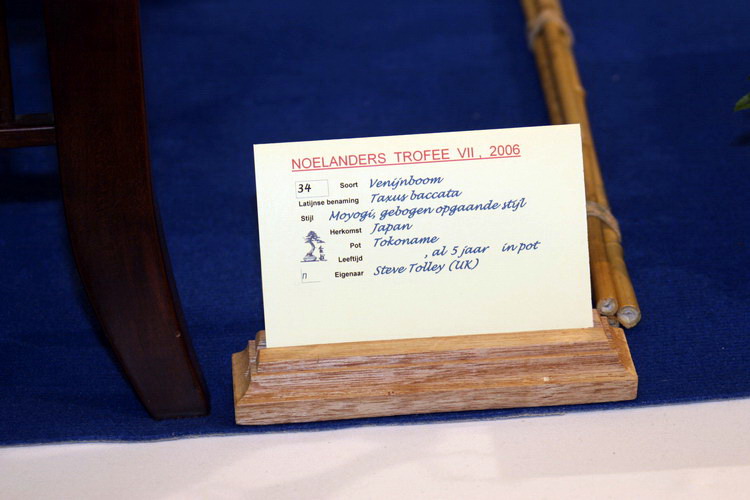 NOELANDERS TROFEE VII, 2006
34 Soort Venijnboom
Latijnse benaming Taxus baccata
Stijl Moyogi, gebogen opgaande stijl
Herkomst Japan
Pot Tokoname
Leeftijd , al 5 jaar in pot
n Eigenaar Steve Tolley (UK)